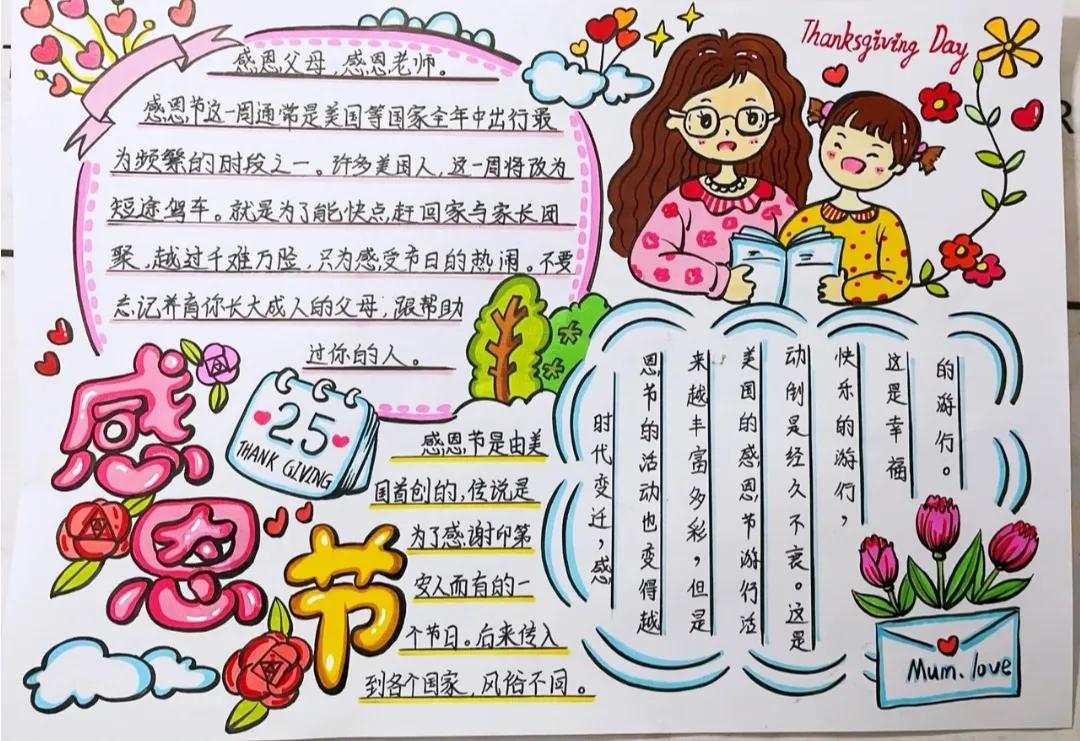 Thanksgiving Day
感恩父母,感恩老师。
感恩节这一周通常是美国等国家全年中出行最
为频繁的时段之一。许多美国人,这一周将改为
短途驾车。就是为了能快点赶回家与家长团
聚,越过千难万险,只为感受节日的热闹。不要
忘记养育你长大成人的父母,跟帮助
过你的人。
感
恩
节
25
THANK GIVING
感恩节是由美
国首创的,传说是
为了感谢印第
安人而有的一
个节日。后来传入
到各个国家,风俗不同。
时代变迁,感
恩节的活动也变得越
来越丰富多彩,但是
美国的感恩节游行活
动倒是经久不衰。这是
快乐的游行,
这是幸福
的游行。
Mum. love
R